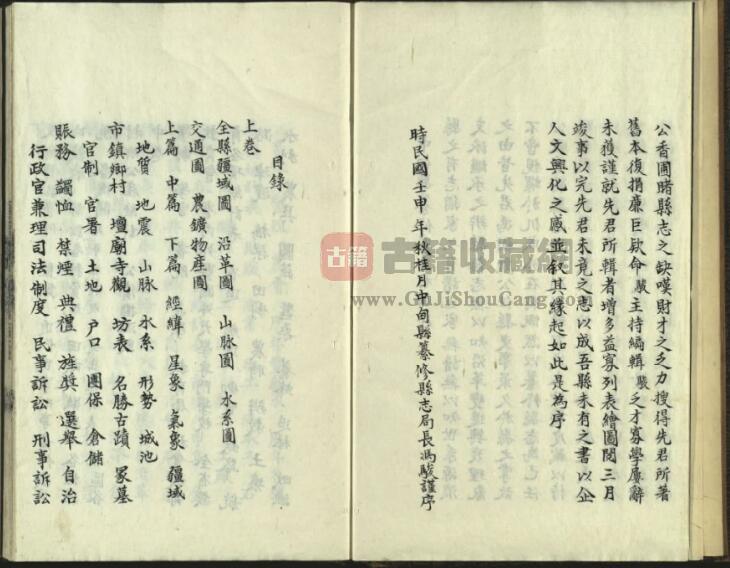 公香圃睹縣志之缺嘆財才之乏力搜得先君所著
舊本復捐廉巨欵命駿主持編輯駿乏才寡學屢辭
未獲謹就先君所輯者增多益寡列表繪圖閱三月
竣事以完先君未竟之志以成吾縣未有之書以企
人文興化之感並叙其緣起如此是為序
時民國壬申年秋桂月中甸縣纂修縣志局長馮駿謹序
目錄
上卷
全縣疆域圖 沿革圖 山脉圖 水系圖
交通圖 農鑛物産圖
上篇 中篇 下篇 經緯 星象 氣象 疆域
地質 地震 山脉 水系 形勢 城池
市鎮鄉村 壇廟寺觀 坊表 名勝古蹟 冢墓
官制 官署 土地 户口 團保 倉儲
賑務 蠲恤 禁煙 典禮 旌奬 選舉 自治
行政官兼理司法制度 民事訴訟 刑事訴訟
古籍收藏網
www.GuJiShouCang.com